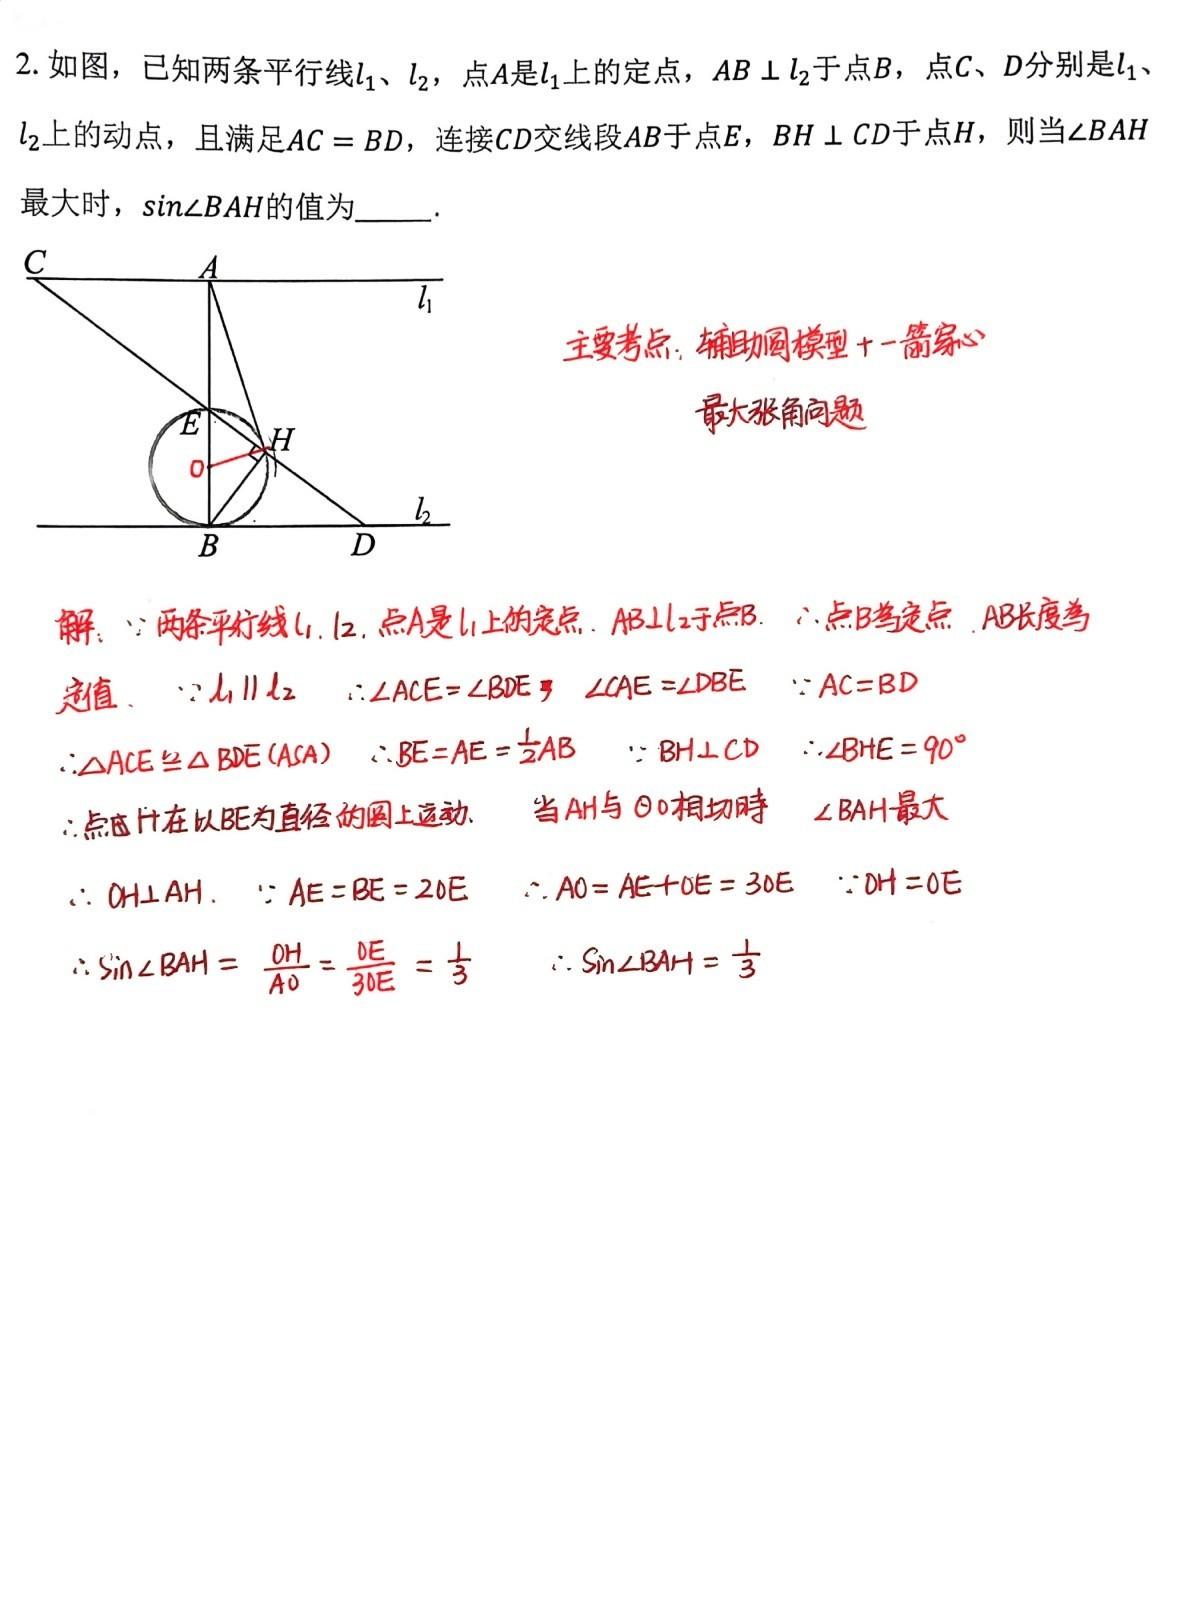 2. 如图，已知两条平行线l₁、l₂，点A是l₁上的定点，AB ⊥ l₂于点B，点C、D分别是l₁、
l₂上的动点，且满足AC = BD，连接CD交线段AB于点E，BH ⊥ CD于点H，则当∠BAH
最大时，sin∠BAH的值为_____.
C A
l₁
E H
O
l₂
B D
主要考点: 辅助圆模型 + 一箭穿心
最大张角问题
解: ∵ 两条平行线 l₁. l₂. 点A是l₁上的定点. AB⊥l₂于点B. ∴点B为定点. AB长度为
定值. ∵ l₁ ∥ l₂ ∴∠ACE = ∠BDE, ∠CAE = ∠DBE ∵ AC = BD
∴△ACE ≌ △BDE (ASA) ∴BE = AE = 1/2 AB ∵ BH⊥CD ∴∠BHE = 90°
∴点H在以BE为直径的圆上运动. 当AH与⊙O相切时 ∠BAH最大
∴ OH⊥AH. ∵ AE = BE = 2OE ∴ AO = AE + OE = 3OE ∵ OH = OE
∴ Sin∠BAH = OH/AO = OE/3OE = 1/3 ∴ Sin∠BAH = 1/3